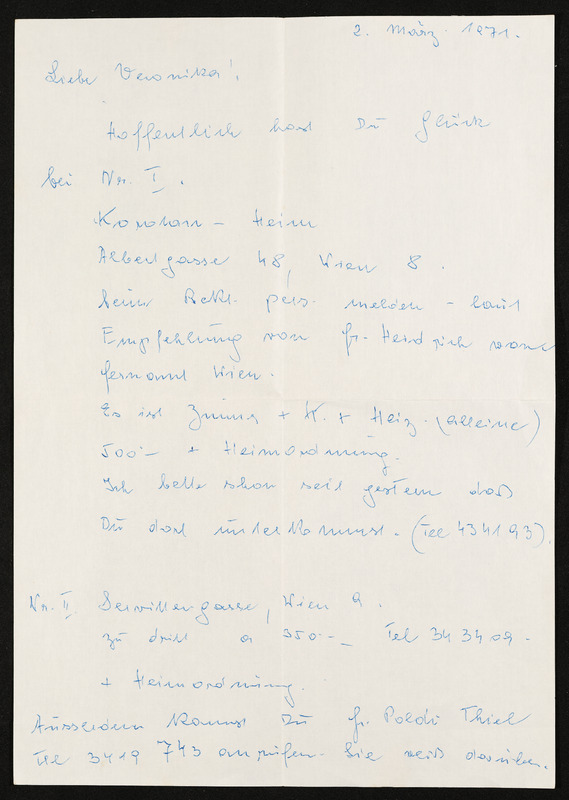 2. März 1971.
Liebe Veronika!
Hoffentlich hast Du Glück
bei Nr. I.
Heim
Albertgasse 48, Wien 8.
beim Rekt. pers. melden - laut
Empfehlung von Fr.
fernamt Wien.
Es ist Zimmer + K. + Heiz. (alleine)
500.- + Heimordnung.
Ich bette schon seit gestern daß
Du dort unterkommst. (Tel 434193).
Nr. II. Servitengasse, Wien 9.
zu dritt a 350.- Tel 343409.
+ Heimordnung.
Ausserdem kannst Du Fr. Poldi Thiel
Tel 3419 743 anrufen. Sie weiß darüber.